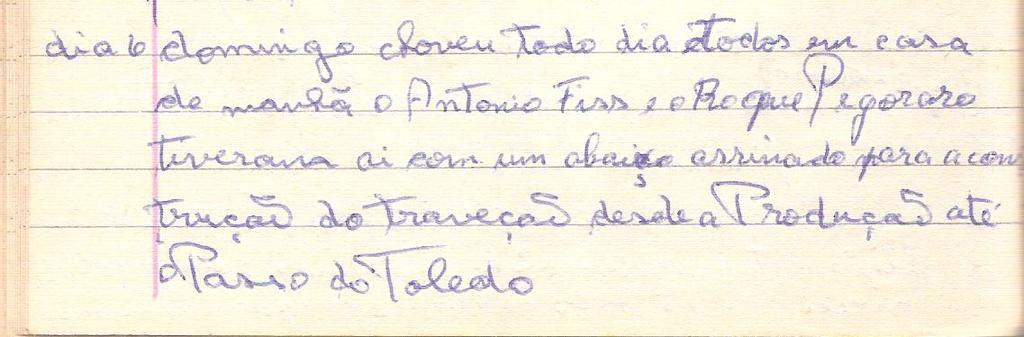 dia 6 domingo choveu todo dia etodos em casa
de manhã o Antonio Fiss e o Roque Pegoraro
tiverana ai com um abaixo assinado para a cons
trução do traveção desde a Produção até
o Passo do Toledo